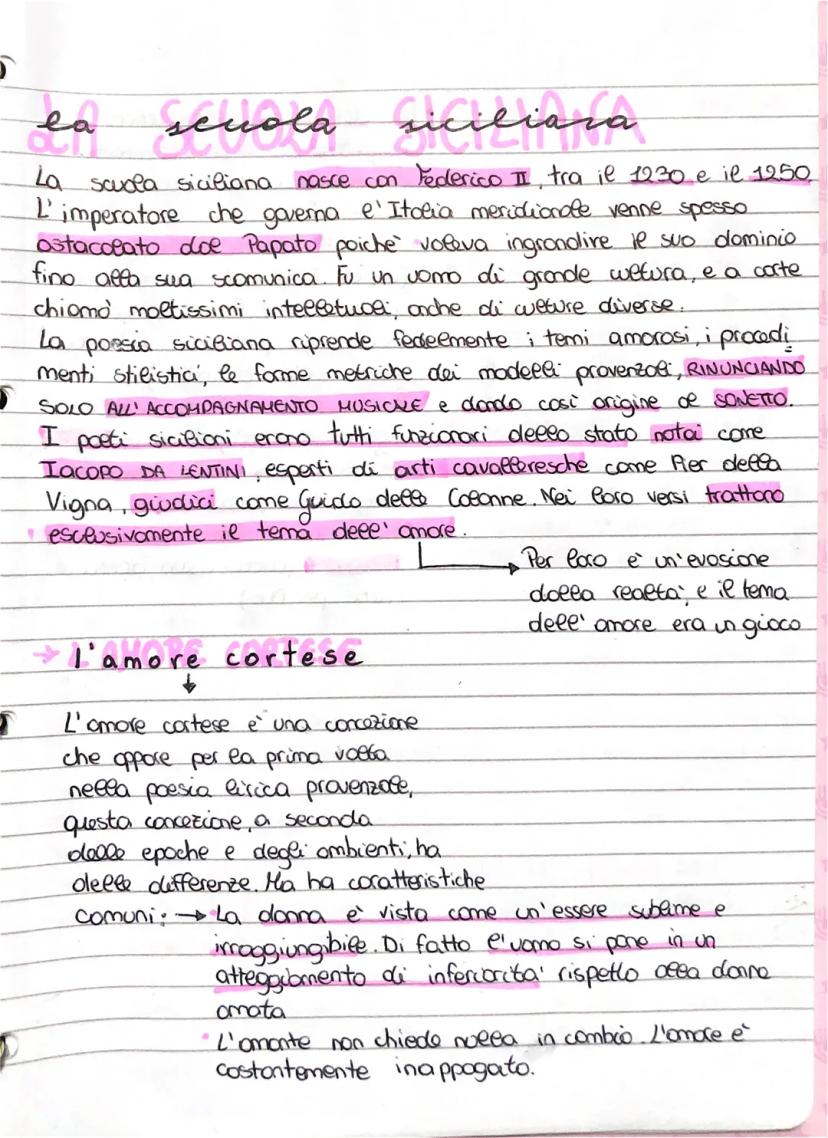 la scuola siciliana
La scuola siciliana nasce con Federico II, tra il 1230 e il 1250
L'imperatore che governa l'Italia meridionale venne spesso
ostacolato dal Papato poichè voleva ingrandire il suo dominio
fino alla sua scomunica. Fu un uomo di grande cultura, e a corte
chiamò moltissimi intellettuali, anche di culture diverse.
La poesia siciliana riprende fedelmente i temi amorosi, i procedi
menti stilistici, le forme metriche dei modelli provenzali, RINUNCIANDO
SOLO ALL'ACCOMPAGNAMENTO MUSICALE e dando così origine al SONETTO.
I poeti siciliani erano tutti funzionari dello stato notai come
IACOPO DA LENTINI, esperti di arti cavalleresche come Pier della
Vigna, giudici come Guido delle Colonne. Nei loro versi trattano
esclusivamente il tema dell'amore.
Per loro è un'evasione
dalla realtà, e il tema
dell'amore era un gioco
→ L'amore cortese
L'amore cortese è una concezione
che appare per la prima volta
nella poesia lirica provenzale,
questa concezione, a seconda
delle epoche e degli ambienti, ha
delle differenze. Ma ha caratteristiche
comuni: → La donna è vista come un'essere sublime e
irraggiungibile. Di fatto l'uomo si pone in un
atteggiamento di inferiorità rispetto alla donna
amata
• L'amante non chiede nulla in cambio. L'amore è
costantemente inappagato.